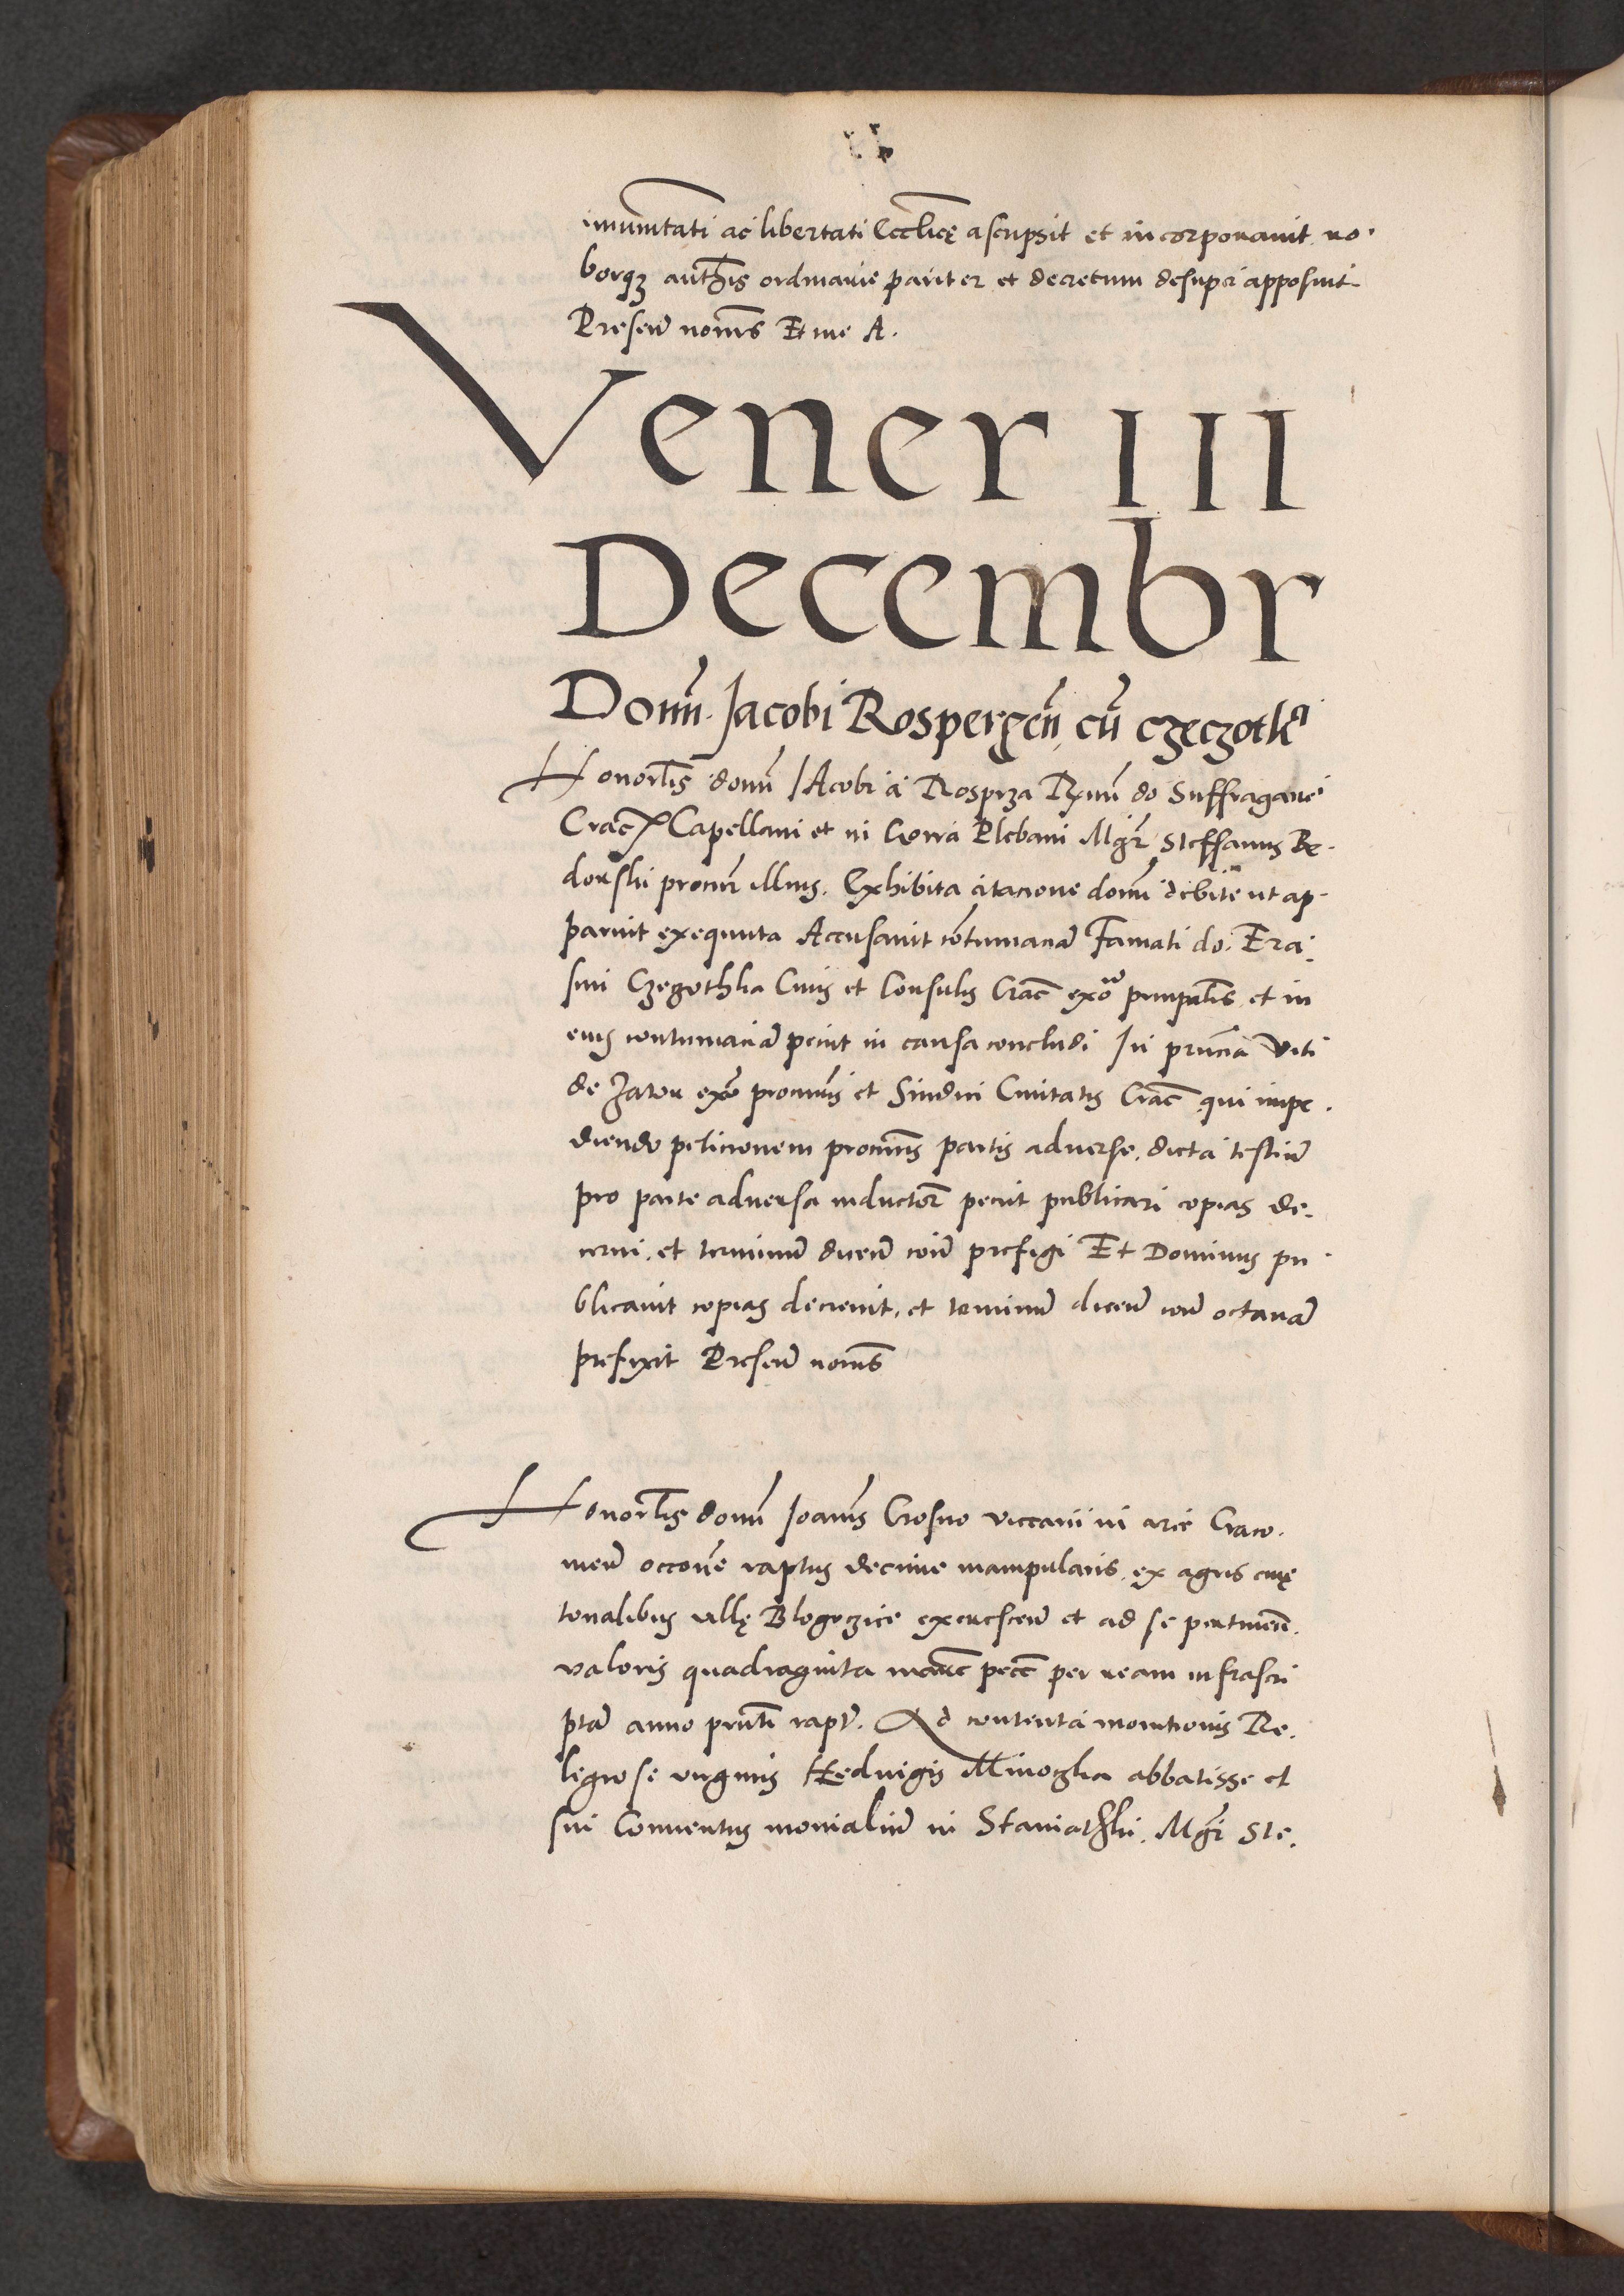 imunitati ac libertati Eccl̃icę ascripsit et incorporavit ro-
borq3 auth̃is ordinarie pariter et decretum desuper apposuit.
Presen̄ noĩs Et me A.
Vener III
Decembr
Doni̅. Jacobi Rospergeñ, cu̅ czeczothka
Honorl̃is doni̅ Jacobi à Rosprza R̃mi do Suffraganei
Crac̃ Capellani et in Plebani Mgr̃ Steffanus Be-
donski procur̃ illius. Exhibita citacione doni̅ debite ut ap-
paruit exequuta Accusavit co̅tumacia̅ Famati do. Era-
smi Czegothka Civis et Consulis Crac̃ ex̃o principal̃is et in
eius contumacia̅ peciit in causa concludi In pñcia Viti
de Zator ex̃o procur̃is et Sindici Civitatis Crac̃ qui impe-
diendo peticionem procur̃is partis adverse. dicta testiu̅
pro parte adversa inductor̃ peciit publicari copias de-
cerni. et terminu̅ dicen̄ con̄ prefigi Et Dominus pu-
blicavit copias decrevit, et terminu̅ dicen̄ con̄ octava̅
prefixit Presen̄ noĩs
Honorl̃is doni̅ Joan̄is Crosno viccarii in arce Craco-
vien̄ occõne raptus decime manipularis ex agris cme-
tonalibus villę Blogoczice excrescen̄ et ad se pertinen̄.
valoris quadraginta marc̃ pec̃ per ream infrascri
pta̅ anno prñti rapt̃. Ad contenta monitionis Re-
legiose virginis Hedvigis Minoczka abbatisse et
sui Conventus monialiu̅ in Staniathki. Mgr̃ Ste-